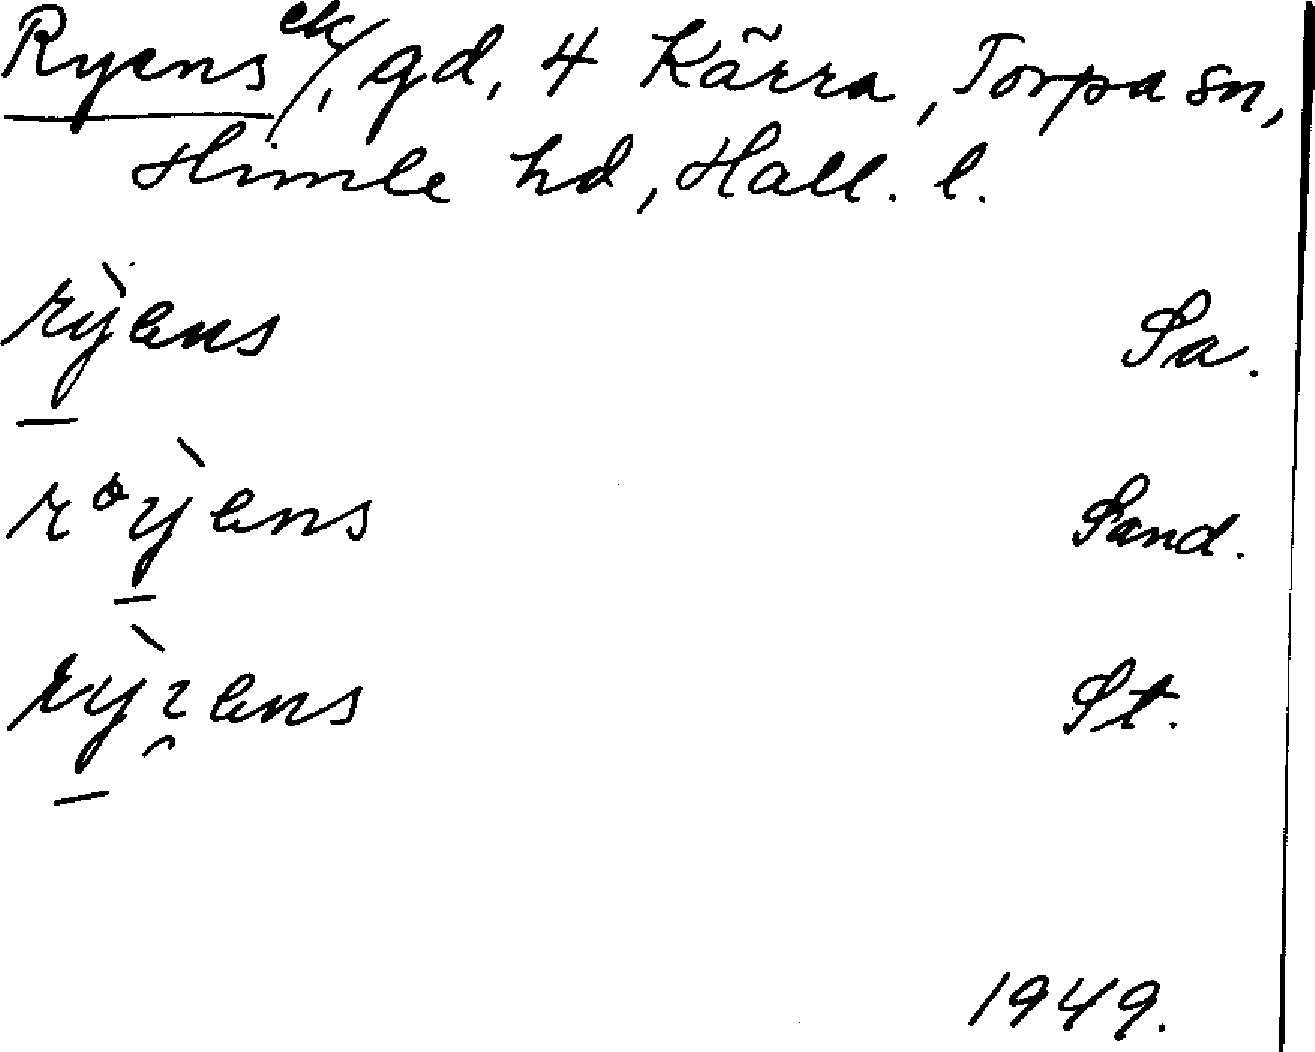 Ryens ek/, gd, 4 Kärra, Torpa sn,
Himle hd, Hall. l.
rỳens Sa.
røỳens Sand.
rỳɿens St.
1949.